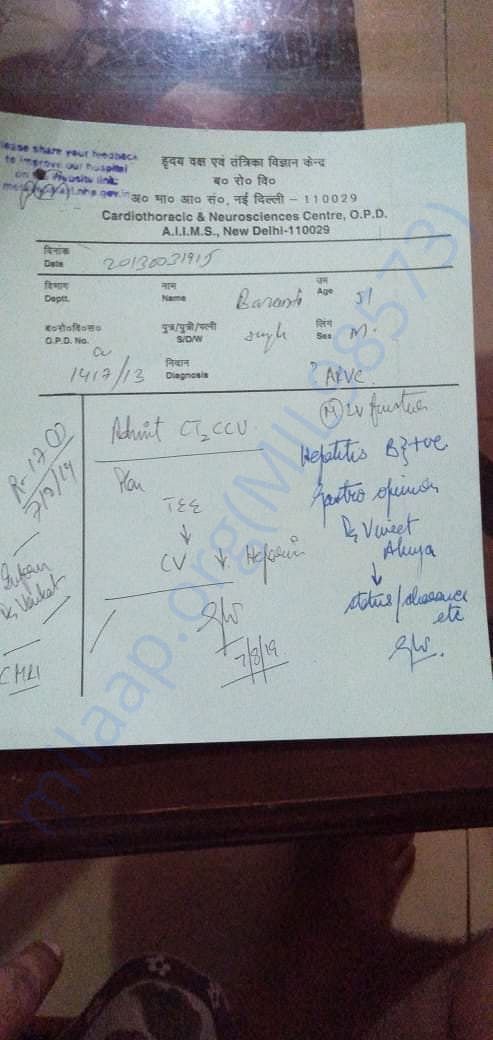 lease share your feedback
to improve our hospital
on
हृदय वक्ष एवं तंत्रिका विज्ञान केन्द्र
ब० रो० वि०
अ० भा० आ० सं०, नई दिल्ली - 110029
Cardiothoracic & Neurosciences Centre, O.P.D.
A.I.I.M.S., New Delhi-110029
दिनांक
Date 20130031915
विभाग
Deptt.
नाम
Name
उम्र
Age 51
ब०रो०वि०सं०
O.P.D. No.
1417/13
पुत्र/पुत्री/पत्नी
S/D/W Singh
लिंग
Sex M.
निदान
Diagnosis ? ARVC.
Admit CT2 CCU
Plan
TEE
↓
CV ↓ Heparin
7/8/19
(N) LV function
Hepatitis B +ve
Gastro opinion
Dr Vineet
Ahuja
↓
status/clearance
etc
7/8/19
Dr Venkat
CMRI
milaap.org(MIL98573)